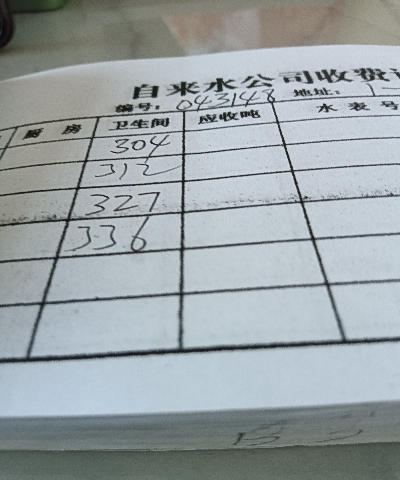 自来水公司收费
编号: 043148 地址:
厨房 卫生间 应收吨 水表号
304
312
327
336